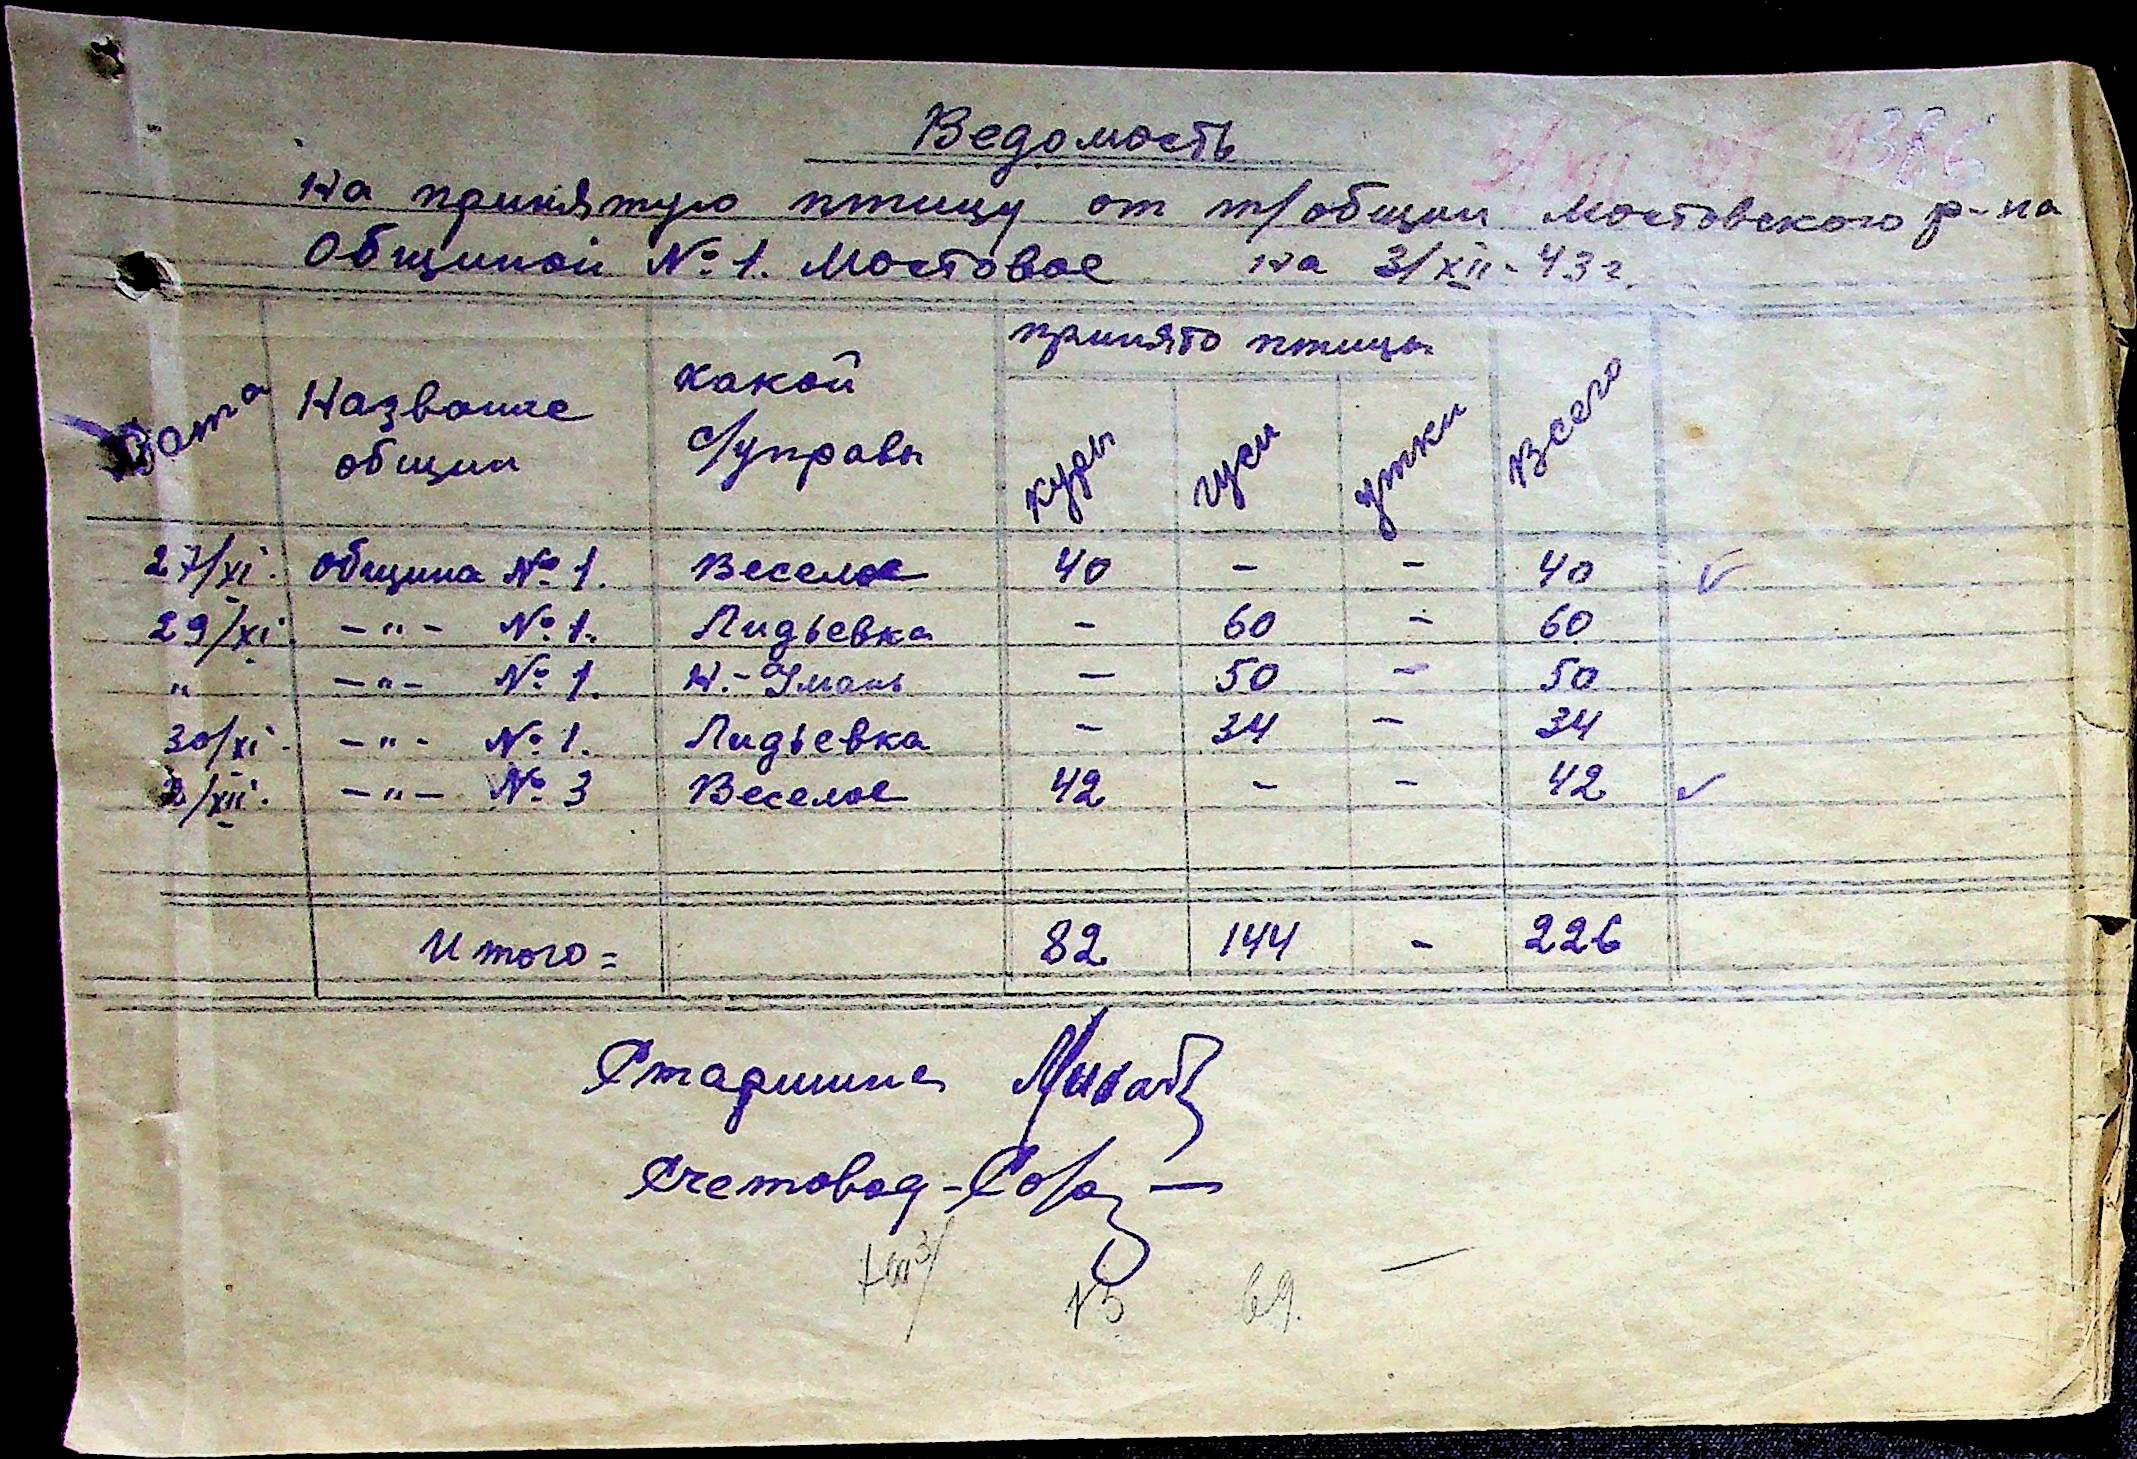 Ведомость
на принятую птицу от т/общин Мостовского р-на
Общиной № 1. Мостовое на 3/XII-43 г.
Дата Название общин какой с/управы принято птицы Всего
куры гуси утки
27/XI. община № 1. Веселое 40 - - 40
29/XI. -"- № 1. Лидьевка - 60 - 60
" -"- № 1. Н.-Умань - 50 - 50
30/XI. -"- № 1. Лидьевка - 34 - 34
2/XII. -"- № 3 Веселое 42 - - 42
Итого = 82 144 - 226
Старшина
Счетовод -
69.